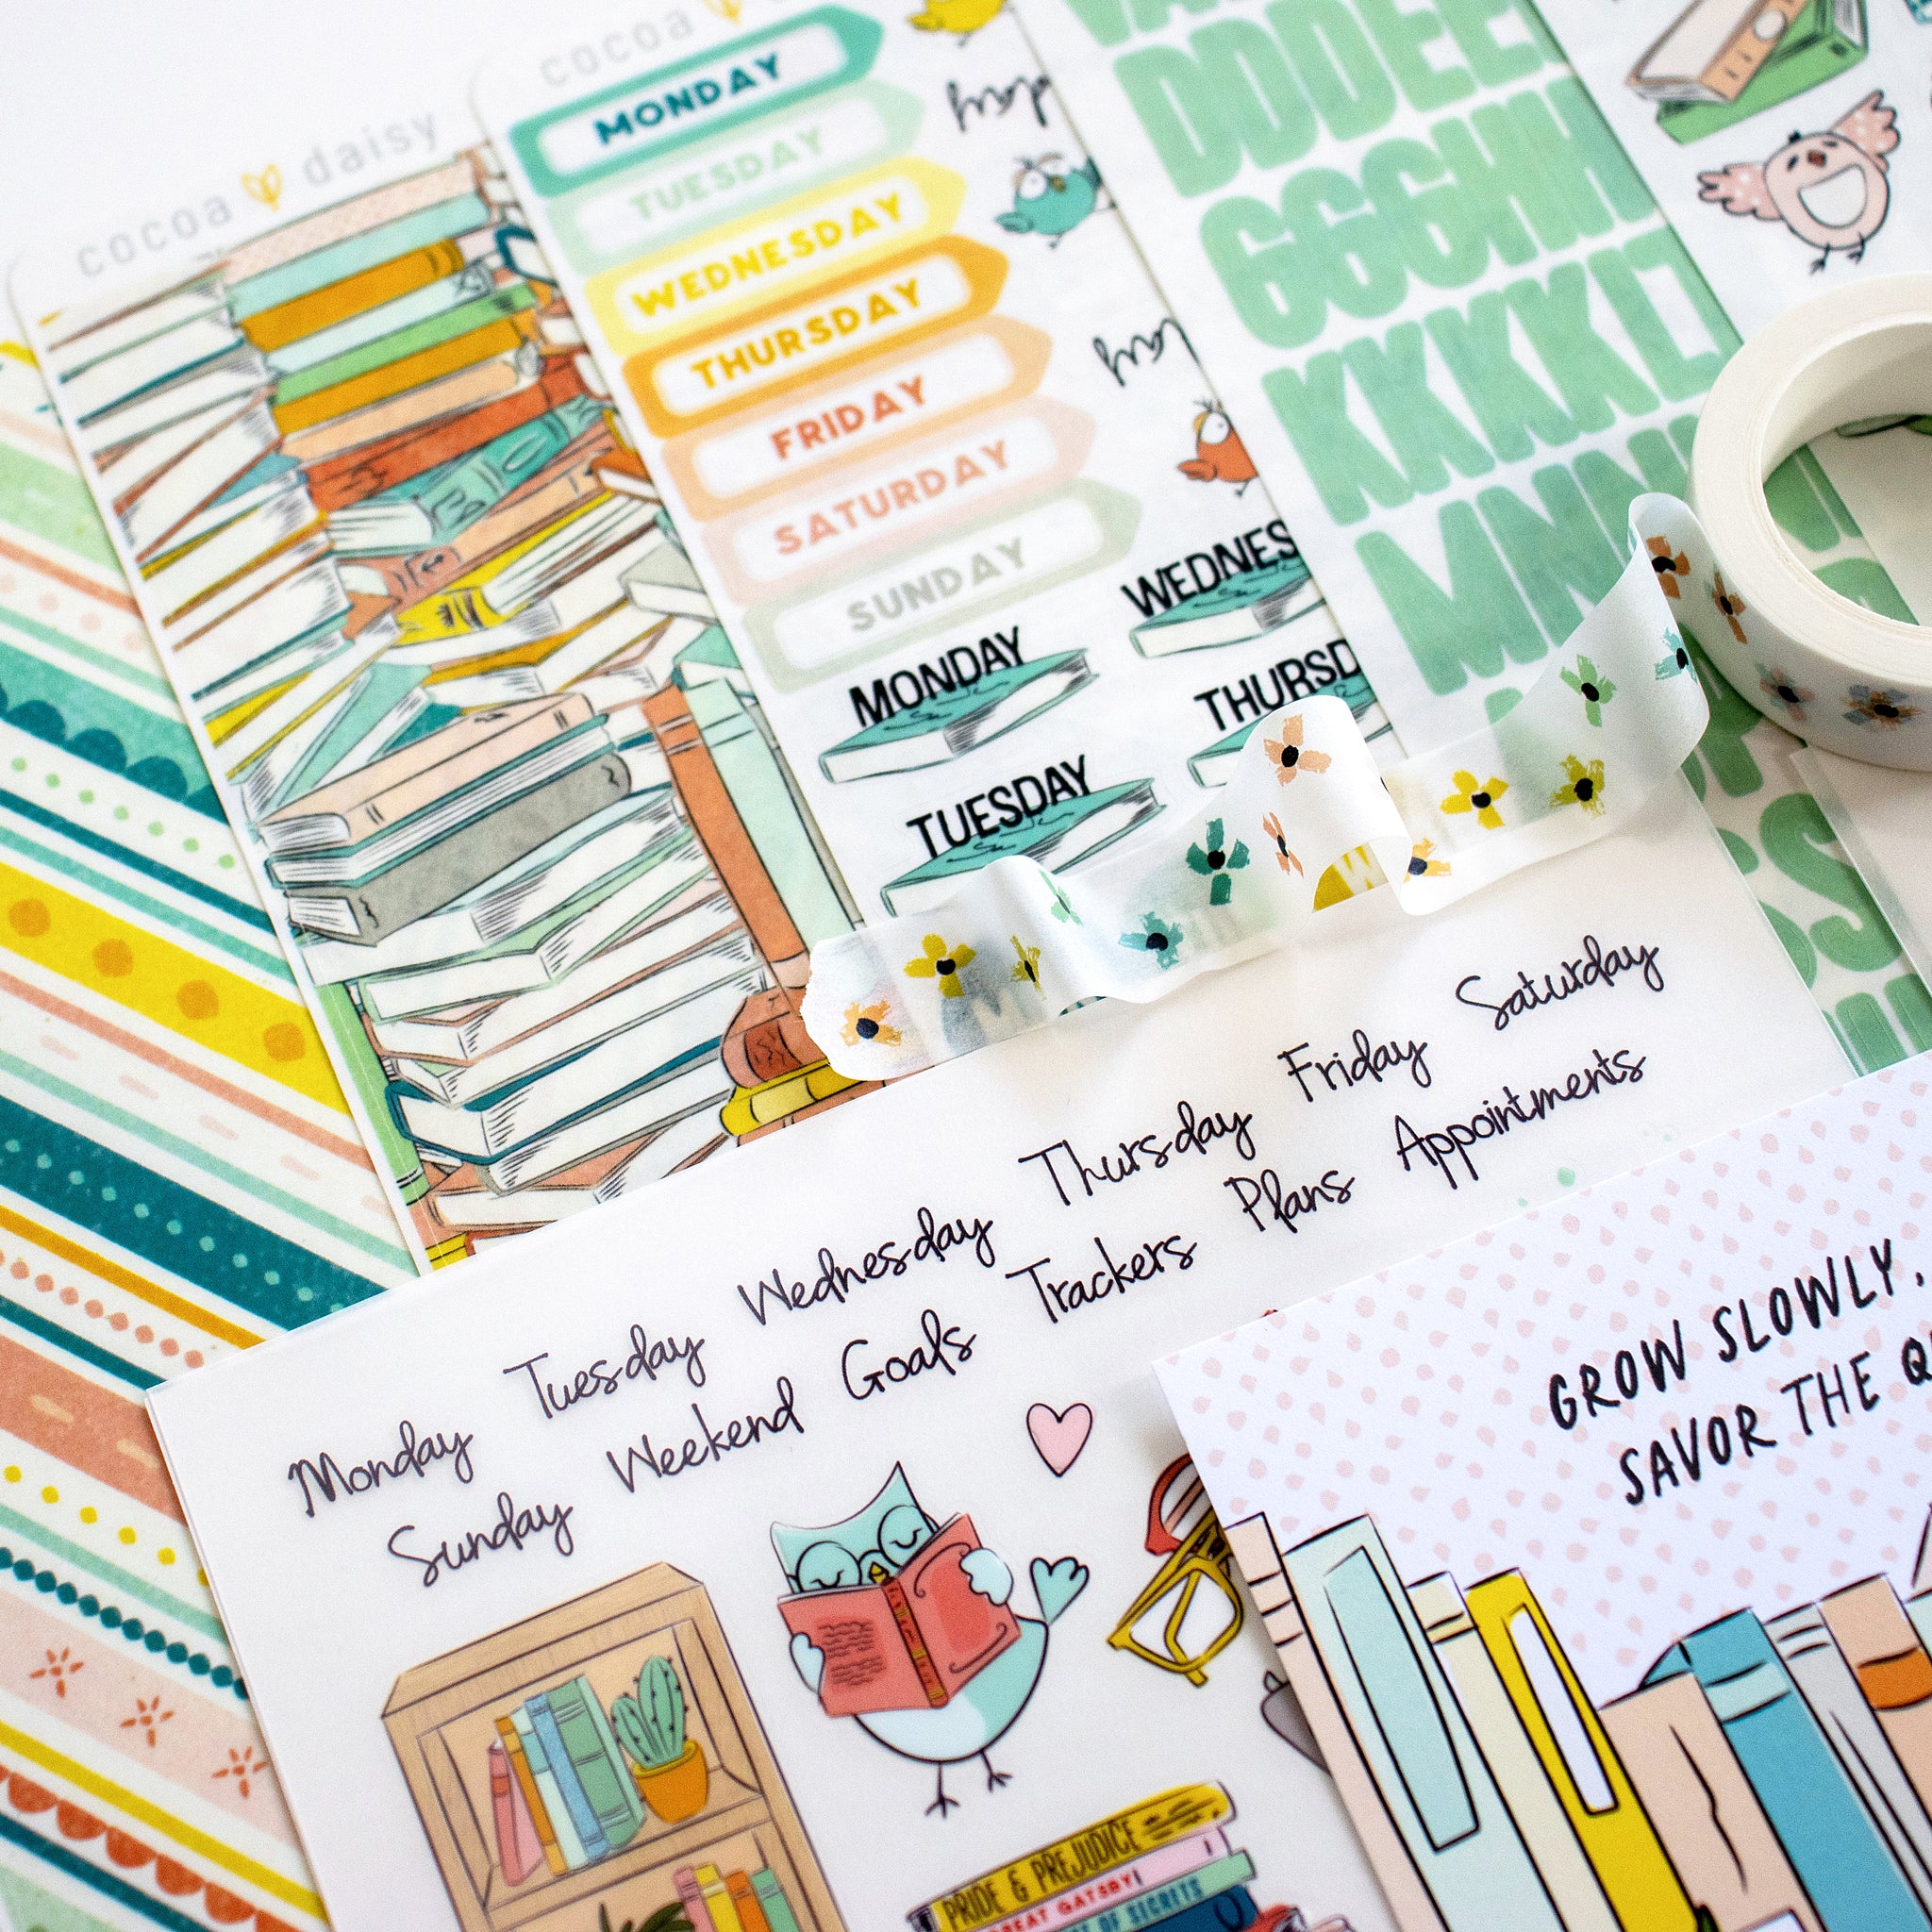 cocoa daisy
cocoa
MONDAY
TUESDAY
WEDNESDAY
THURSDAY
FRIDAY
SATURDAY
SUNDAY
MONDAY
TUESDAY
WEDNES
THURSD
DDDEE
GGGHHH
KKKK
MNN
Monday Tuesday Wednesday Thursday Friday Saturday
Sunday Weekend Goals Trackers Plans Appointments
GROW SLOWLY.
SAVOR THE Q
PRIDE & PREJUDICE
GREAT GATSBY!
OF SECRETS